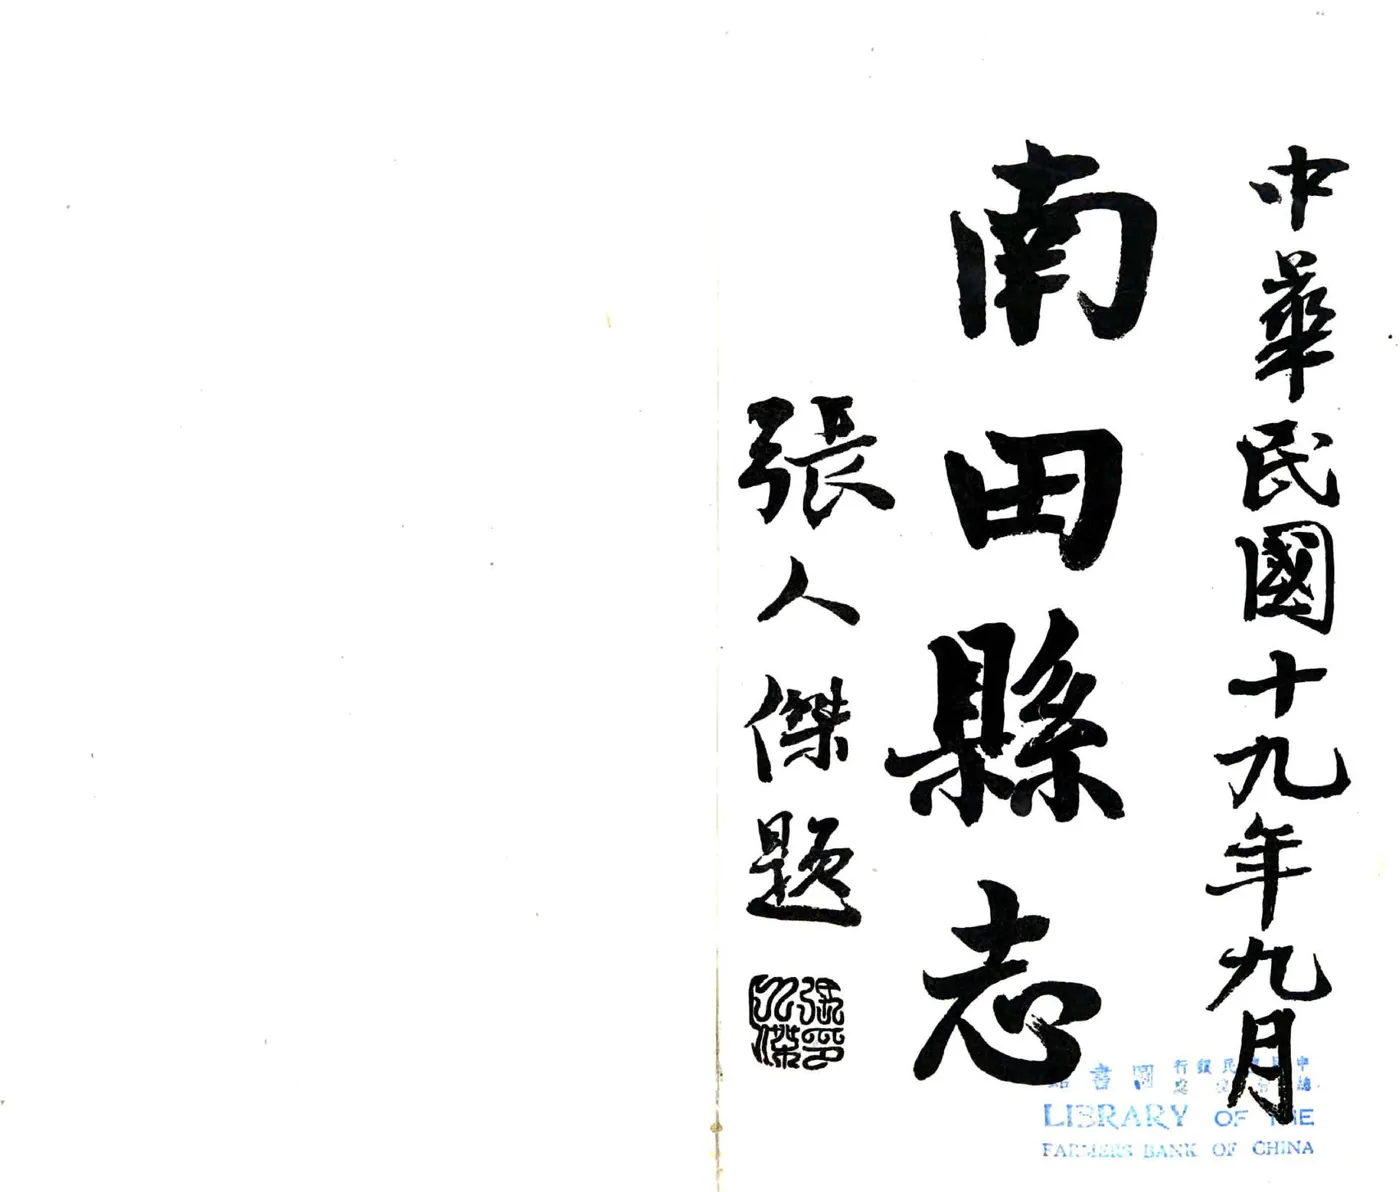 中華民國十九年九月
南田縣志
張人傑題
張人傑印
圖書
LIBRARY OF THE
FARMERS BANK OF CHINA